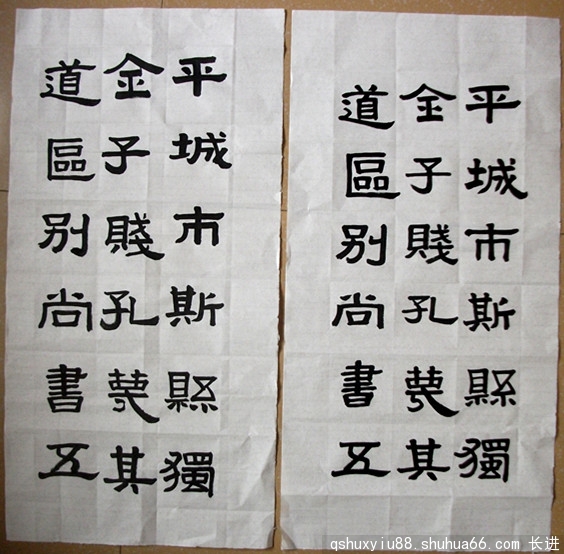 平城市斯縣獨
金子賤孔其
道區别尚書五
平城市斯縣獨
全子賤孔其
道區别尚書五
qshuxyiu88.shuhua66.com 长进